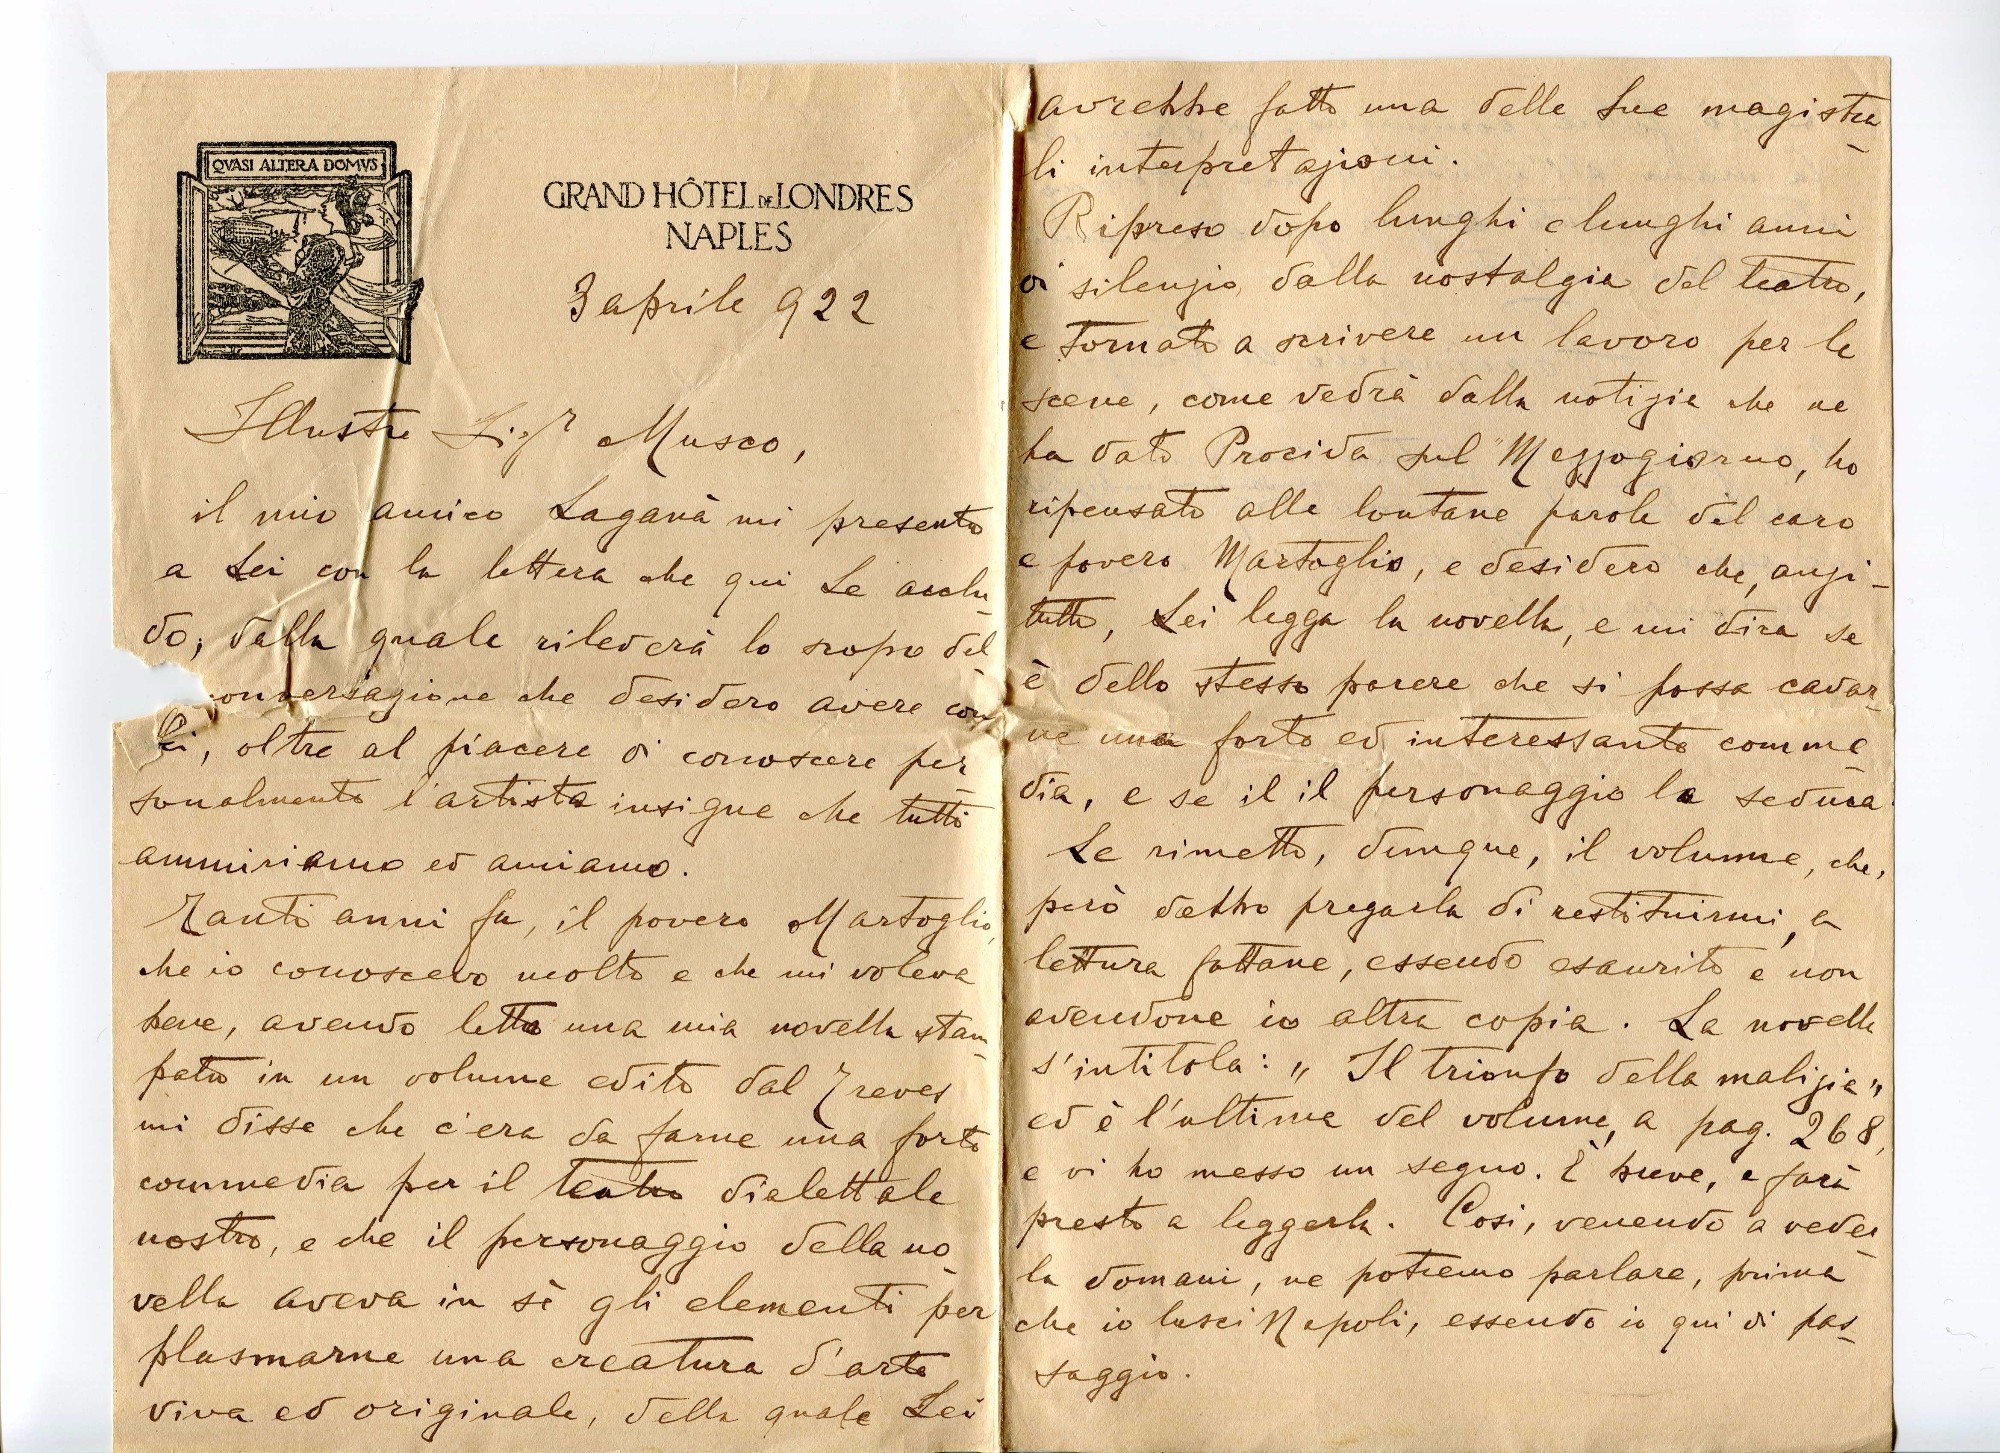 QVASI ALTERA DOMVS
GRAND HÔTEL DE LONDRES
NAPLES
3 aprile 922
Illustre Sigr Musco,
il mio amico Laganà mi presenta
a Lei con la lettera che qui Le acclu-
do, dalla quale rileverà lo scopo del
conversazione che desidero avere con
Lei, oltre al piacere di conoscere per-
sonalmente l'artista insigne che tutti
ammiriamo ed amiamo.
Tanti anni fa, il povero Martoglio,
che io conoscevo molto e che mi voleva
bene, avendo letto una mia novella stam-
pata in un volume edito dal Treves
mi disse che c'era da farne una forte
commedia per il teatro dialettale
nostro, e che il personaggio della no-
vella aveva in sè gli elementi per
plasmarne una creatura d'arte
viva ed originale, della quale Lei
avrebbe fatto una delle Sue magistra-
li interpretazioni.
Ripreso dopo lunghi e lunghi anni
di silenzio, dalla nostalgia del teatro,
e tornato a scrivere un lavoro per le
scene, come vedrà dalla notizia che ne
ha dato Procida sul "Mezzogiorno, ho
ripensato alle lontane parole del caro
e povero Martoglio, e desidero che, anzi-
tutto, Lei legga la novella, e mi dica se
è dello stesso parere che si possa cavar-
ne una forte ed interessante comme-
dia, e se il il personaggio la seduca.
Le rimetto, dunque, il volume, che,
però debbo pregarla di restituirmi, a
lettura fattane, essendo esaurito e non
avendone io altra copia. La novella
s'intitola: „ Il trionfo della malizia „
ed è l'ultima del volume, a pag. 268,
e vi ho messo un segno. È breve, e farà
presto a leggerla. Così, venendo a veder-
la domani, ne potremo parlare, prima
che io lasci Napoli, essendo io qui di pas-
saggio.